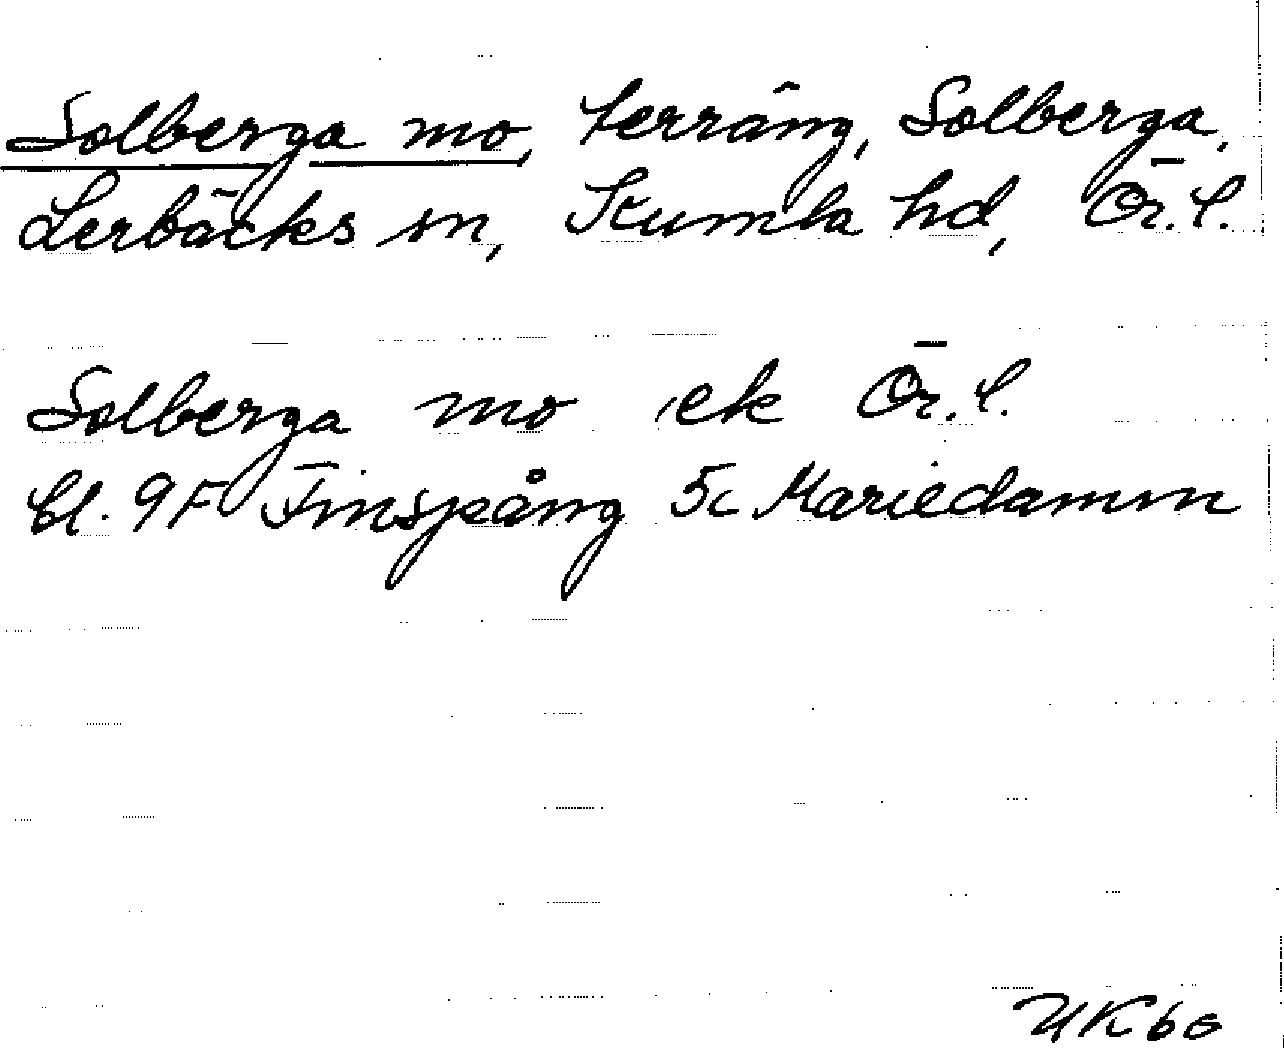 Solberga mo, terräng, Solberga,
Lerbäcks sn, Kumla hd, Ör.l.
Solberga mo ek Ör.l.
bl. 9F Finspång 5c Mariedamm
UK66